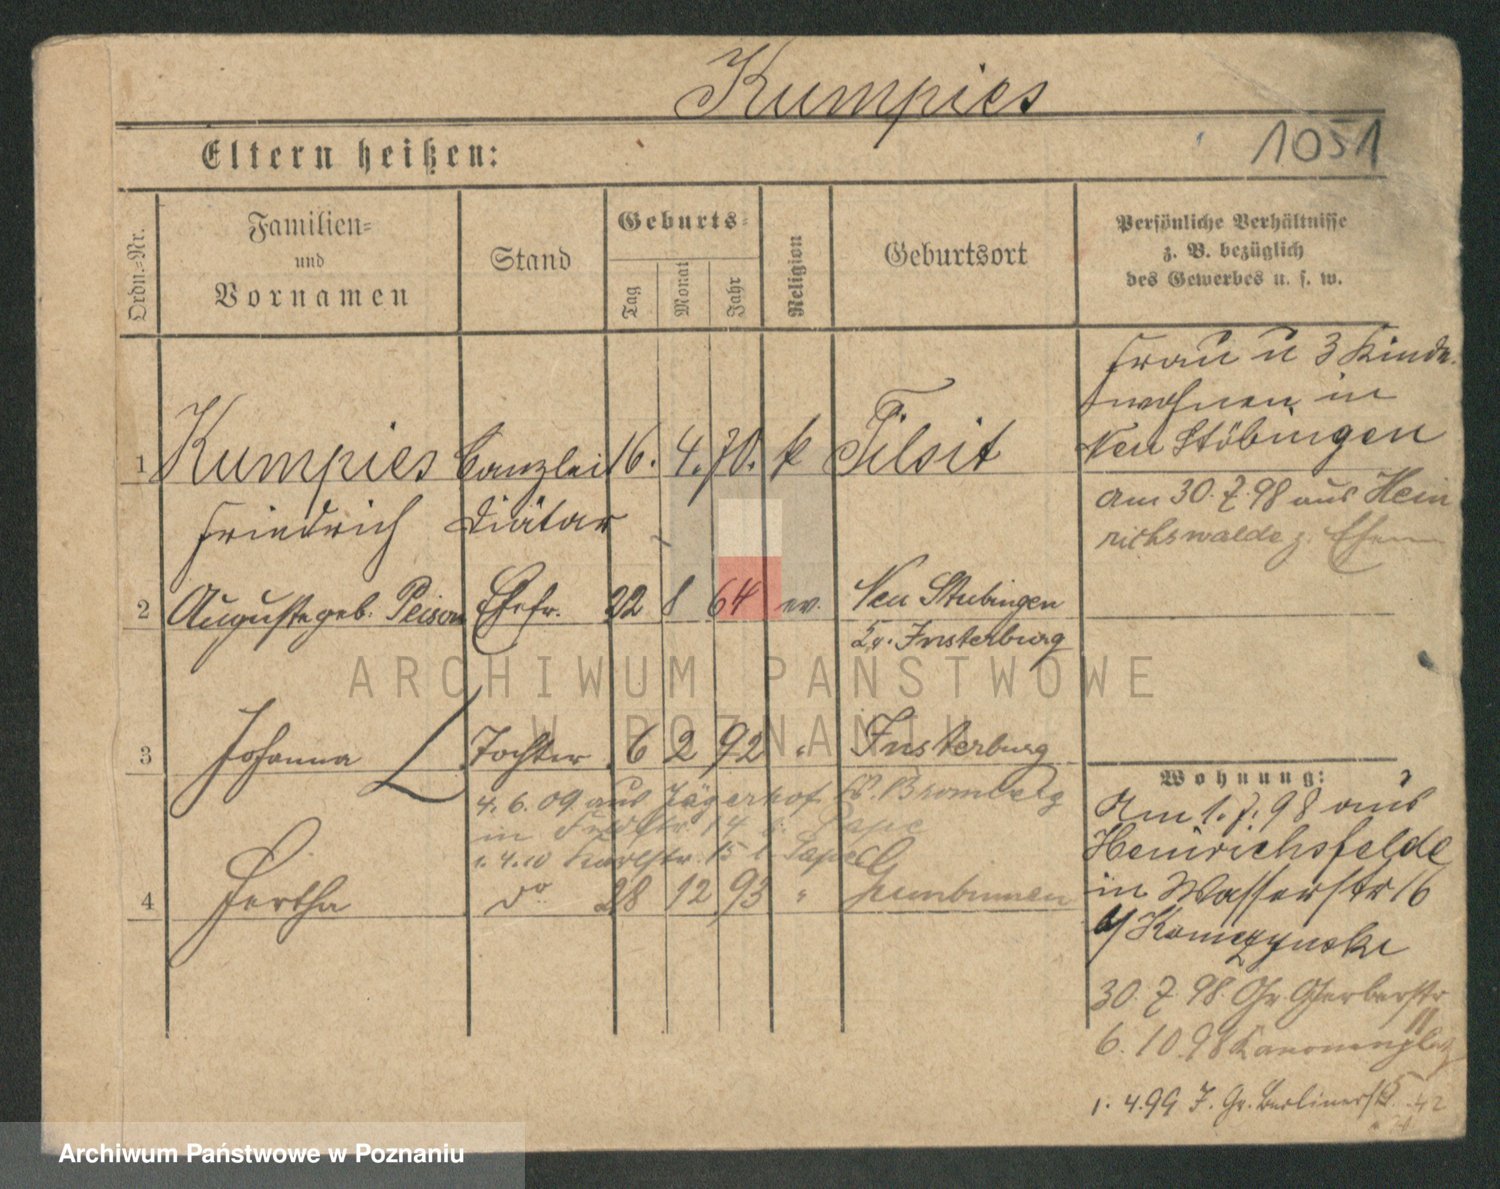 Kumpies
1051
Eltern heißen:
Ordn.-Nr.
Familien-
und
Vornamen
Stand
Geburts-
Tag
Monat
Jahr
Religion
Geburtsort
Persönliche Verhältnisse
z. B. bezüglich
des Gewerbes u. s. w.
Frau u 3 Kinder
wohnen in
Neu Stöbingen
1 Kumpies Canzlei 16. 4. 70. k Tilsit
Friedrich Diätar
am 30. 7. 98 aus Hein
richswalde z.
2 Auguste geb. Peison Ehefr. 22 8 64 ev. Neu Stubingen
Kr. Insterburg
ARCHIWUM PAŃSTWOWE
W POZNANIU
3 Johanna Tochter 6 2 92 " Insterburg
4. 6. 09 aus Jägerhof Kr. Bromberg
in 14 b. Pape
1. 4. 10 15 b. Pape
4 Bertha do 28 12 93 " Gumbinnen
Wohnung:
Am 1. 7. 98 aus
Heinrichsfelde
in Wasserstr 16
b/
30. 7. 98. Gr. Gerberstr
11
6. 10. 98 Kanonenplatz
1. 4. 99 Gr. Berlinerstr. 42
Archiwum Państwowe w Poznaniu